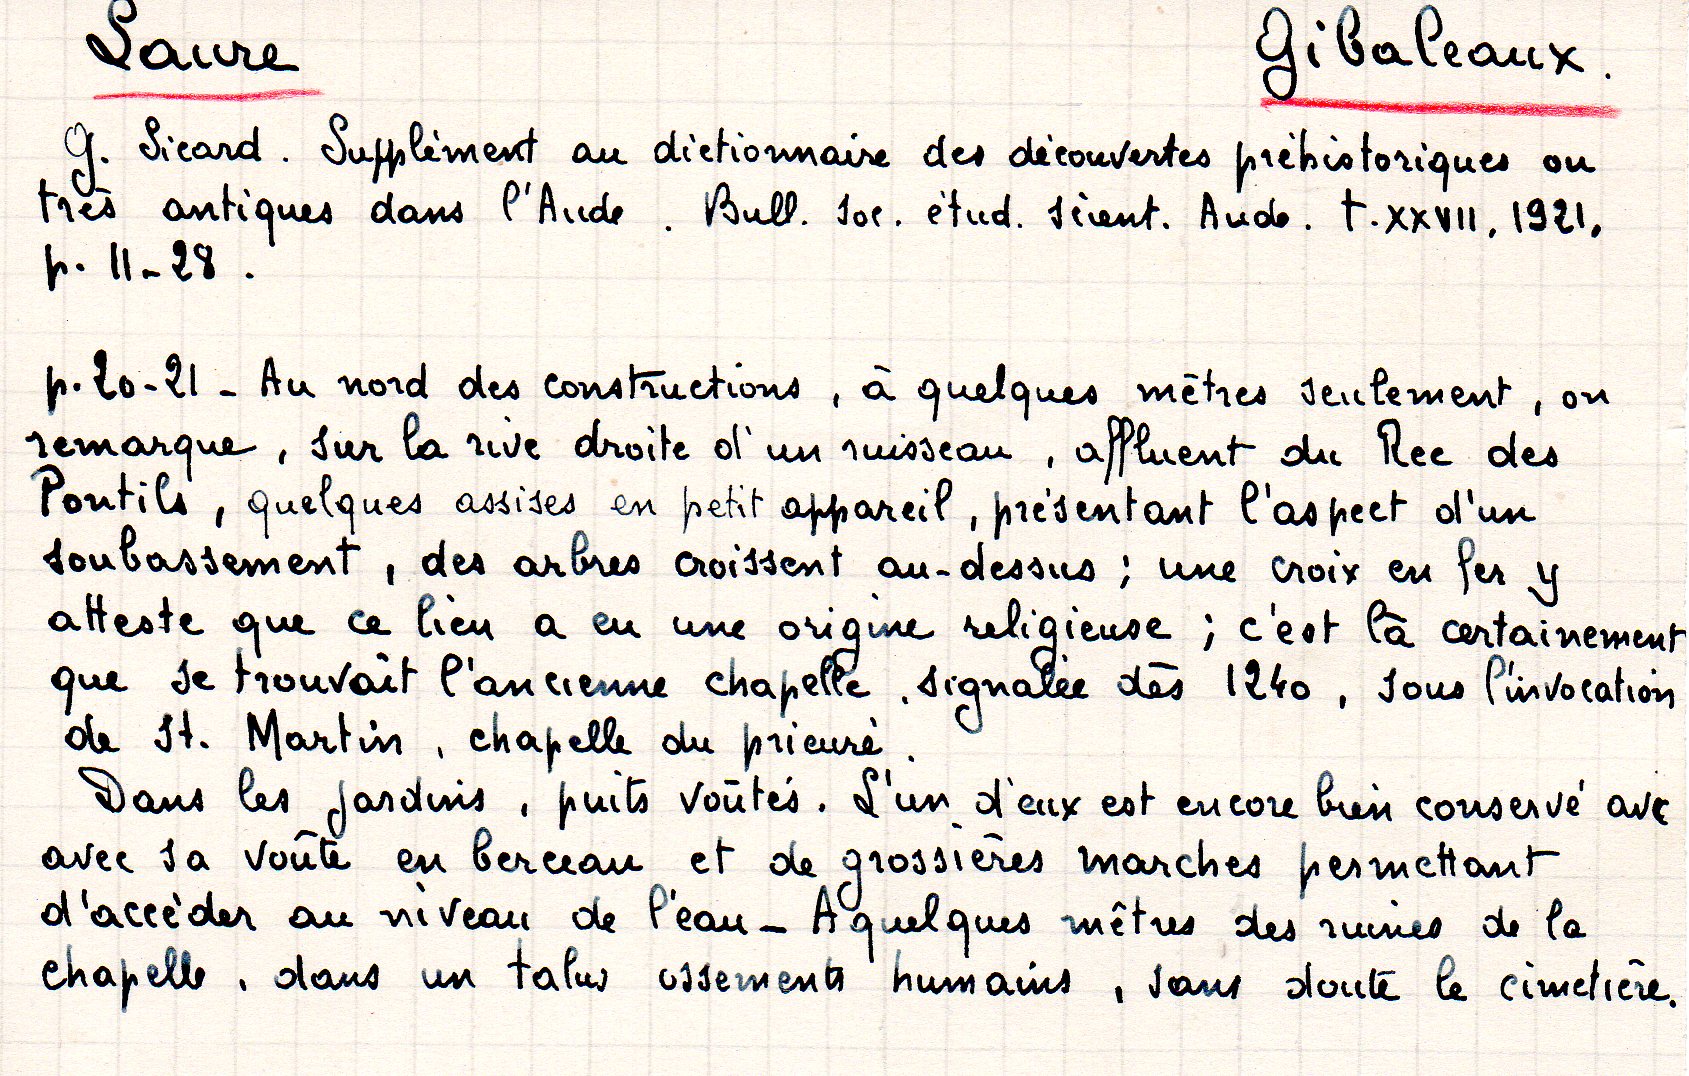 Laure Gibaleaux.
G. Sicard. Supplément au dictionnaire des découvertes préhistoriques ou
très antiques dans l'Aude. Bull. Soc. étud. scient. Aude. t. XXVII, 1921,
p. 11-28.
p. 20-21 - Au nord des constructions, à quelques mètres seulement, on
remarque, sur la rive droite d'un ruisseau, affluent du Rec des
Pontils, quelques assises en petit appareil, présentant l'aspect d'un
soubassement, des arbres croissent au-dessus ; une croix en fer y
atteste que ce lieu a eu une origine religieuse ; c'est là certainement
que se trouvait l'ancienne chapelle, signalée dès 1240, sous l'invocation
de St. Martin, chapelle du prieuré.
Dans les jardins, puits voûtés. L'un d'eux est encore bien conservé avec
avec sa voûte en berceau et de grossières marches permettant
d'accéder au niveau de l'eau - A quelques mètres des ruines de la
chapelle, dans un talus ossements humains, sans doute le cimetière.